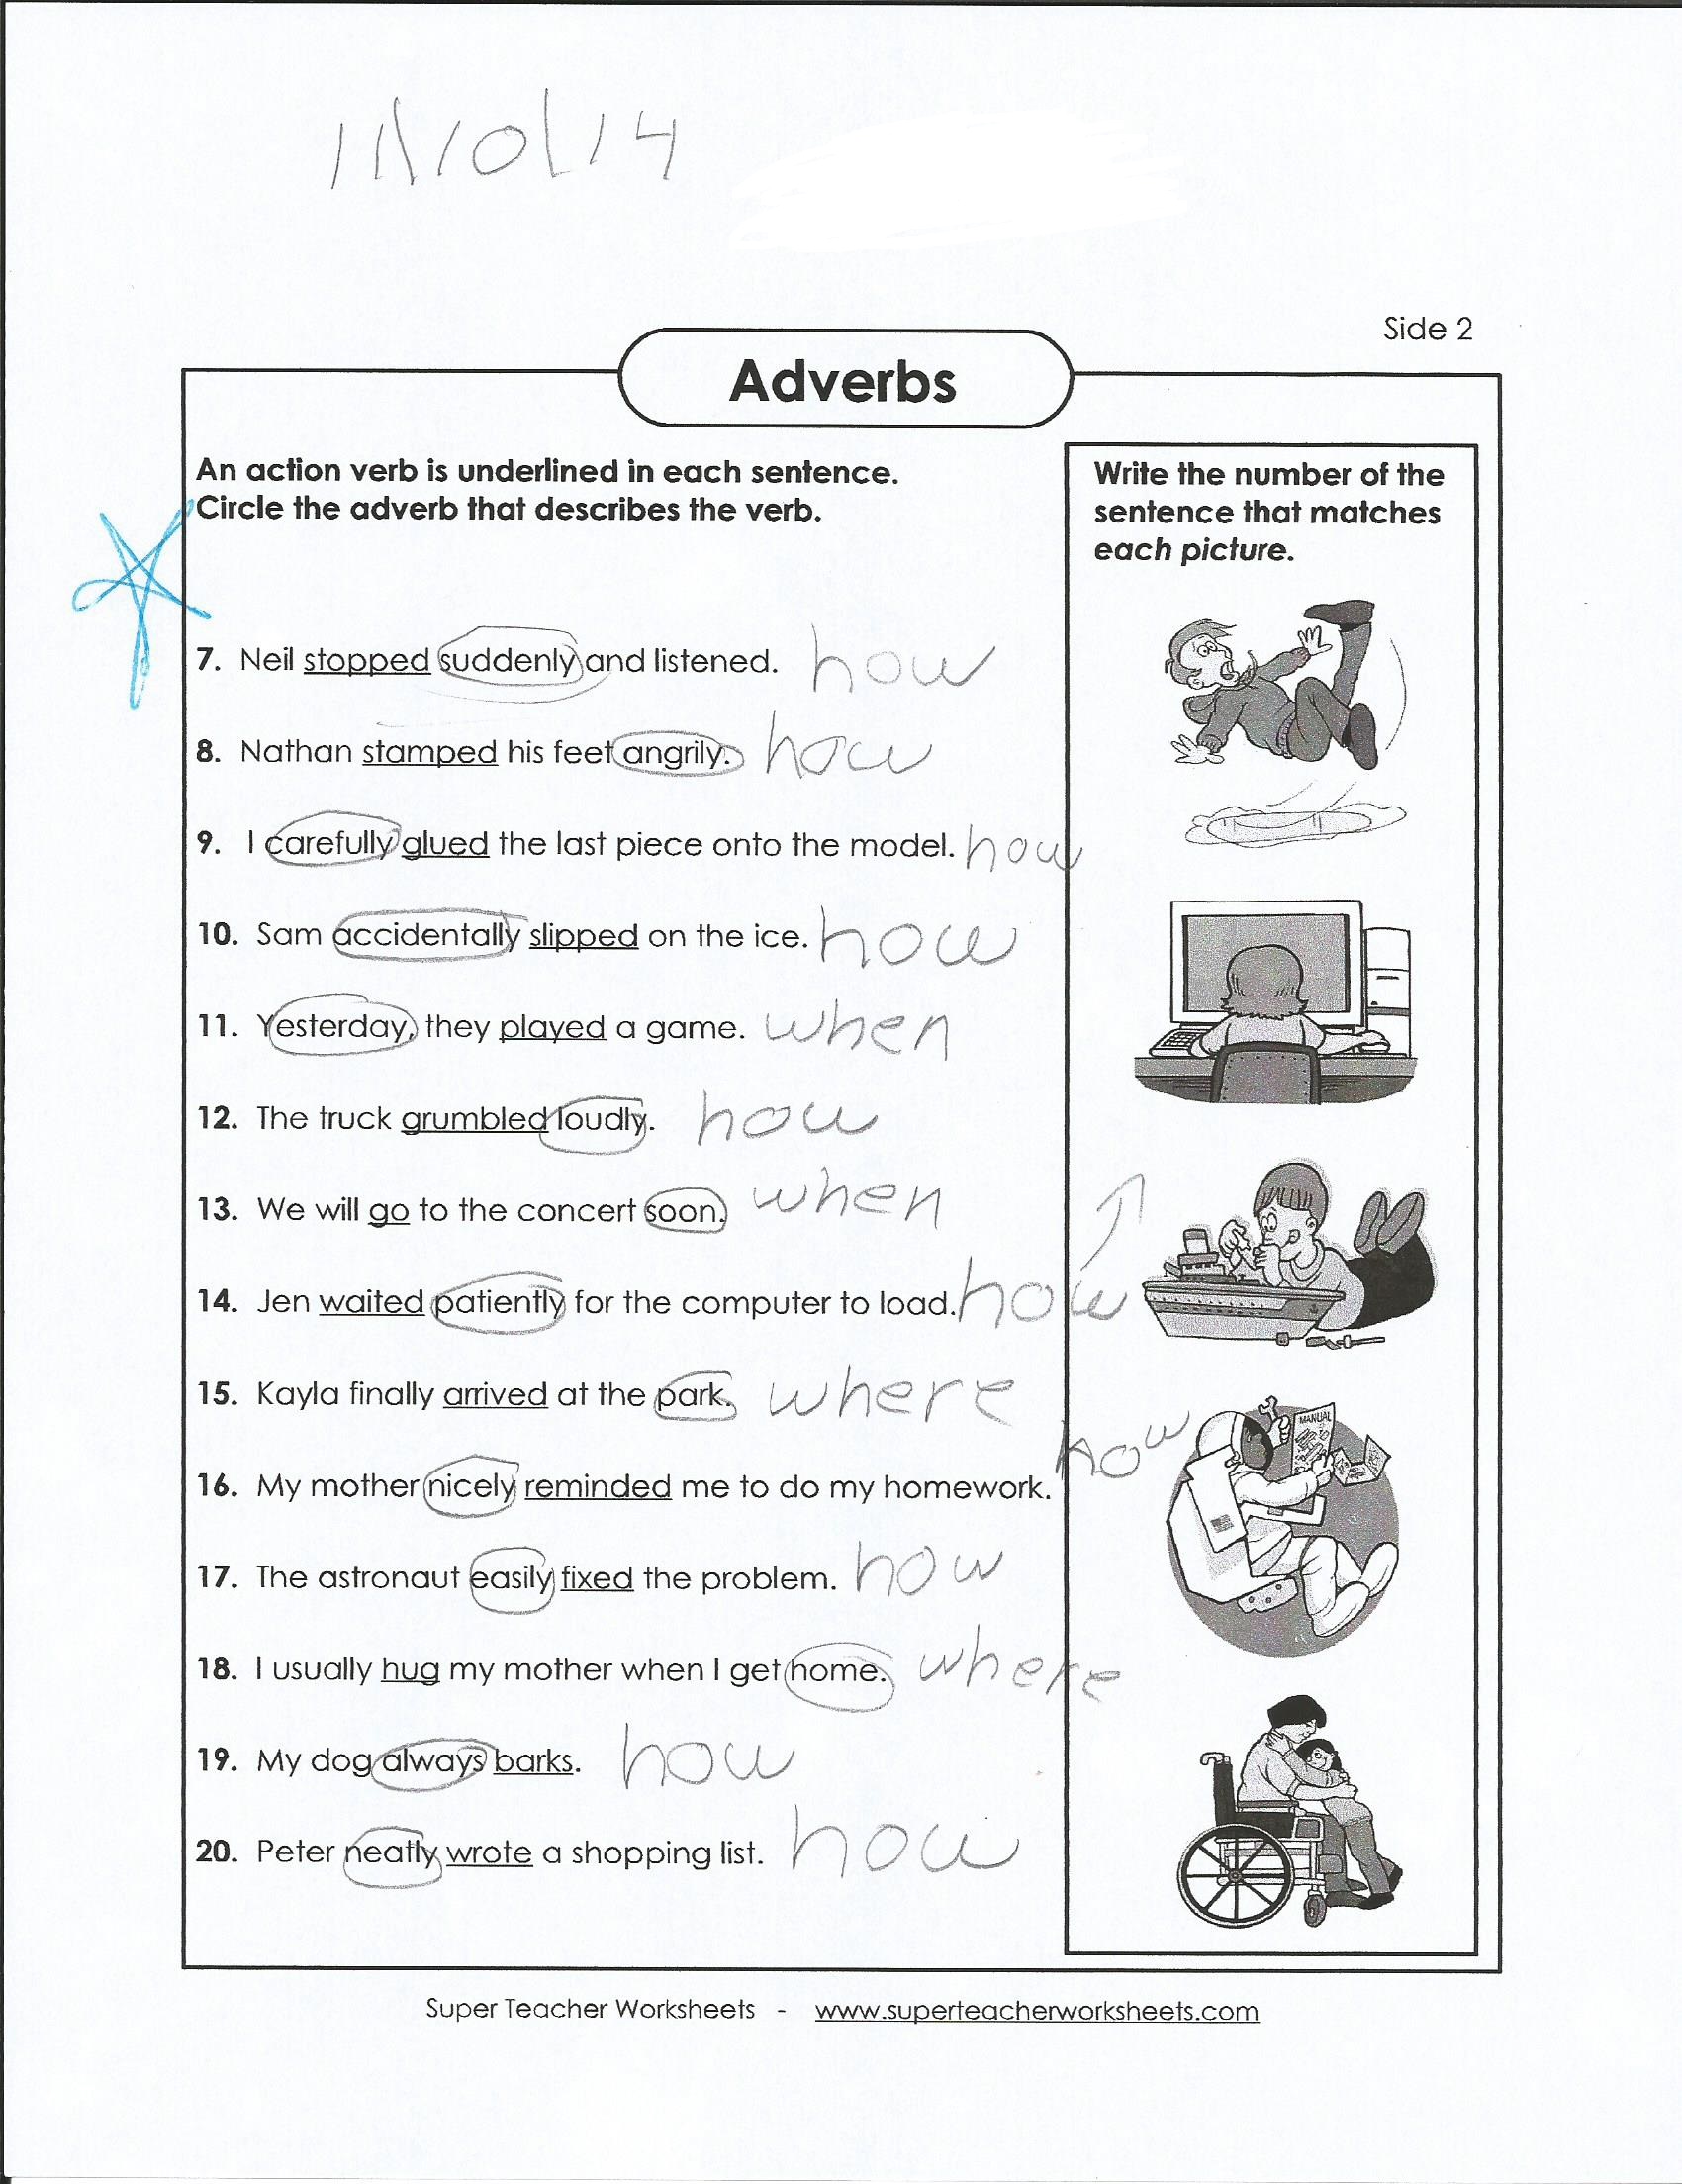 11\10\14
Side 2
Adverbs
An action verb is underlined in each sentence.
Circle the adverb that describes the verb.
7. Neil stopped suddenly and listened. how
8. Nathan stamped his feet angrily. how
9. I carefully glued the last piece onto the model. how
10. Sam accidentally slipped on the ice. how
11. Yesterday, they played a game. when
12. The truck grumbled loudly. how
13. We will go to the concert soon. when
14. Jen waited patiently for the computer to load. how
15. Kayla finally arrived at the park. where
16. My mother nicely reminded me to do my homework. how
17. The astronaut easily fixed the problem. how
18. I usually hug my mother when I get home. where
19. My dog always barks. how
20. Peter neatly wrote a shopping list. how
Write the number of the
sentence that matches
each picture.
MANUAL
Super Teacher Worksheets - www.superteacherworksheets.com